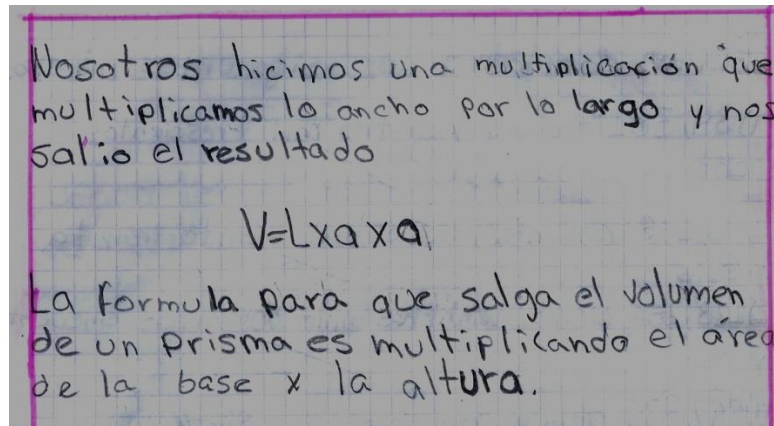 Nosotros hicimos una multiplicación que
multiplicamos lo ancho por lo largo y nos
salio el resultado
V=Lxaxa
La formula para que salga el volumen
de un prisma es multiplicando el área
de la base x la altura.